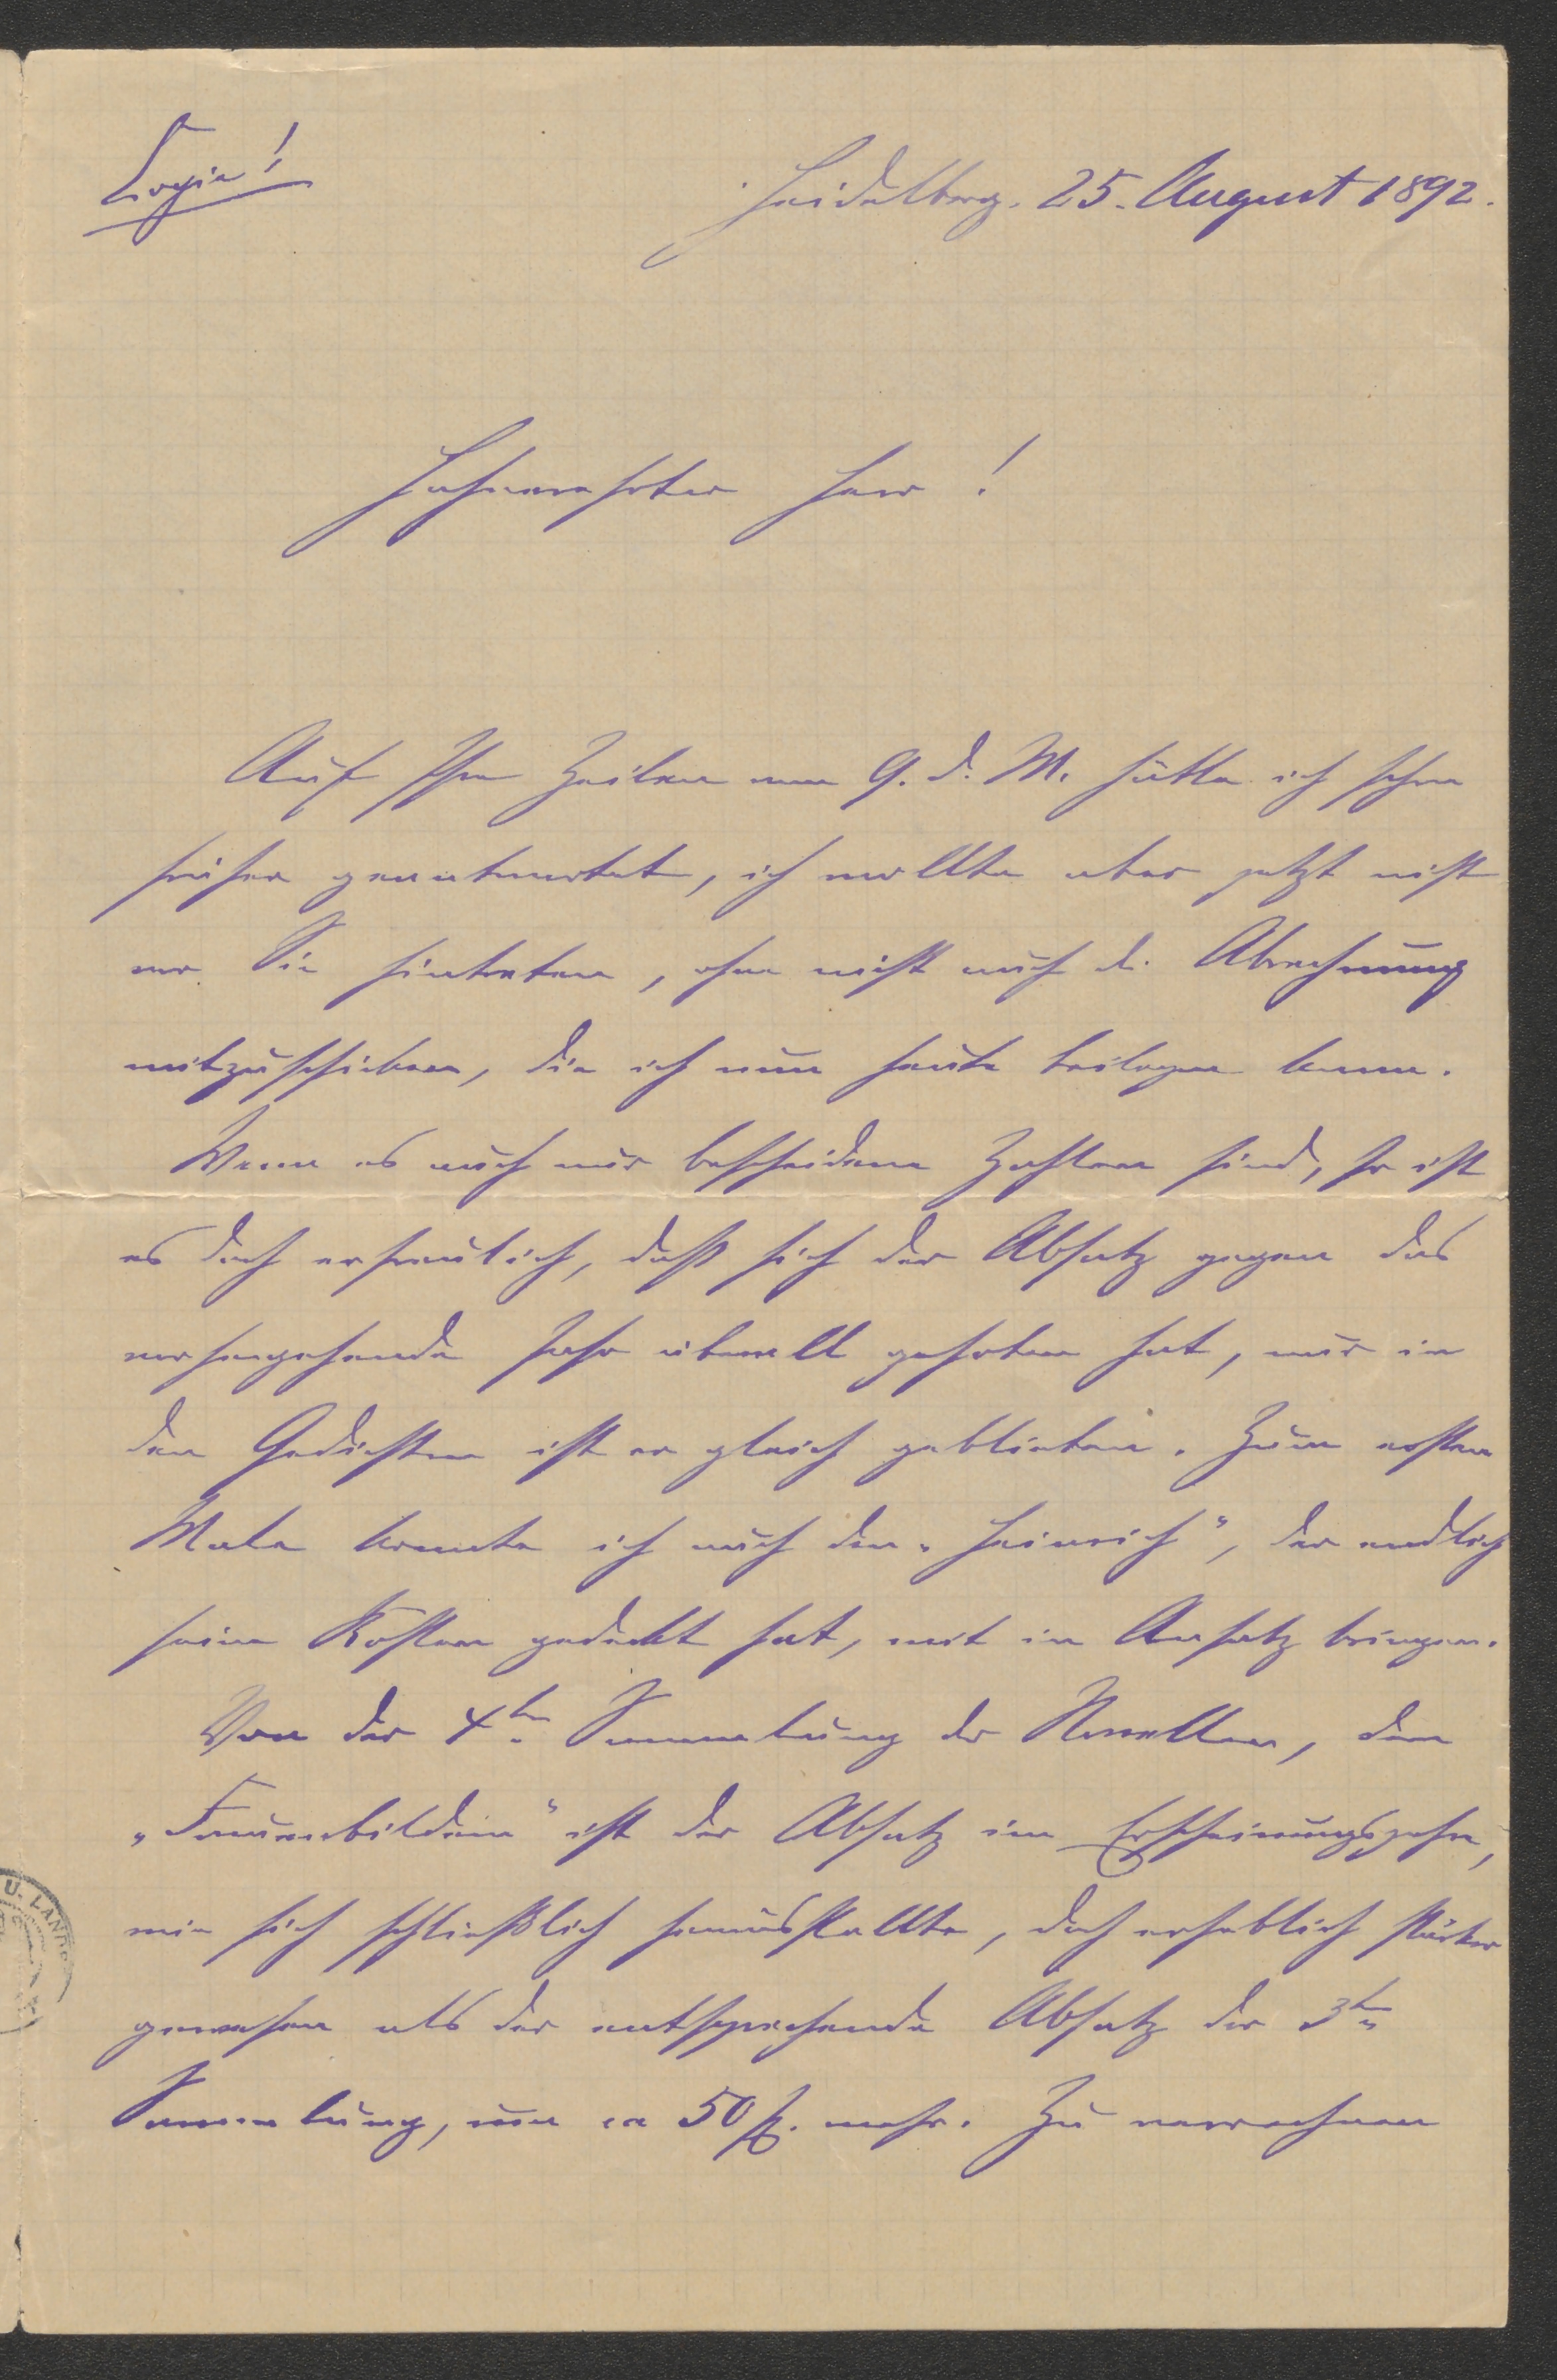 Copie!
Heidelberg. 25. August 1892.
Hochverehrter Herr!
Auf Ihre Zeilen vom 9. d. M. hätte ich schon
früher geantwortet, ich wollte aber jetzt nicht
vor Sie hintreten, ohne nicht auch d. Abrechnung
mitzuschicken, die ich nun heute beilegen kann.
Wenn es auch nur bescheidene Zahlen sind, so ist
es doch erfreulich, daß sich der Absatz gegen das
vorhergehende Jahr überall gehoben hat, nur in
den Gedichten ist er gleich geblieben. Zum ersten
Male konnte ich auch den „Heinrich", der endlich
seine Kosten gedeckt hat, mit in Ansatz bringen.
Von der 4ten Sammlung der Novellen, den
„Frauenbildern" ist der Absatz im Erscheinungsjahre,
wie sich schließlich herausstellte, doch erheblich stärker
gewesen als der entsprechende Absatz der 3ten
Sammlung, um ca 50 % mehr. Zu verrechnen
U. LANDE